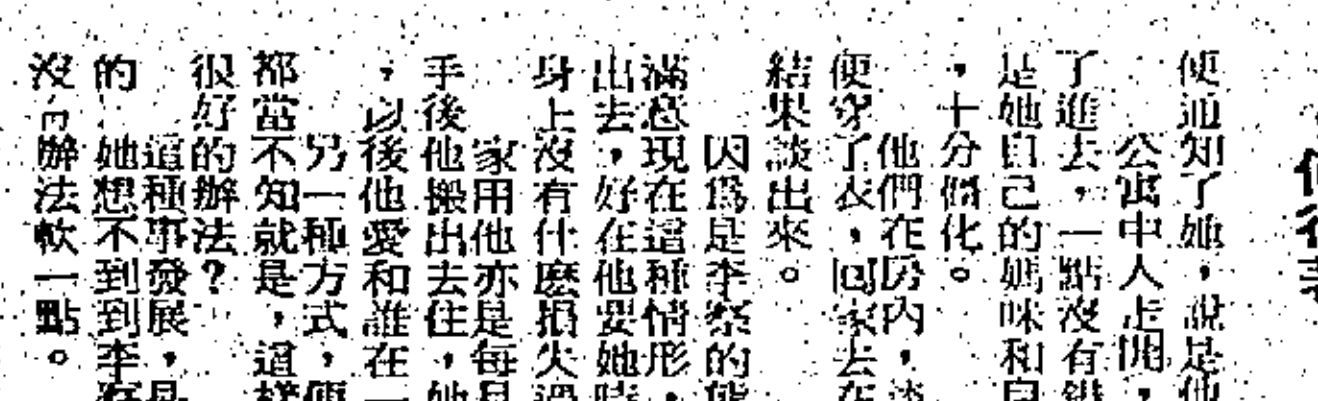 便通知了她，說是他
公寓中人走開，
了進去，一點沒有錯
是她自己的媽咪和自
，十分僵化。
他們在房內，談
便穿了衣，回家去在
結果談出來。
因為是李察的態
滿意現在這種情形，
出去，好在他要她時
身上沒有什麼損失過
家用他亦是每月
手後他搬出去住，她
，以後他愛和誰在一
另一種方式，便
都當不知就是，這樣
很好的辦法？
這種事發展，是
的她想不到到李察
沒有辦法軟一點。